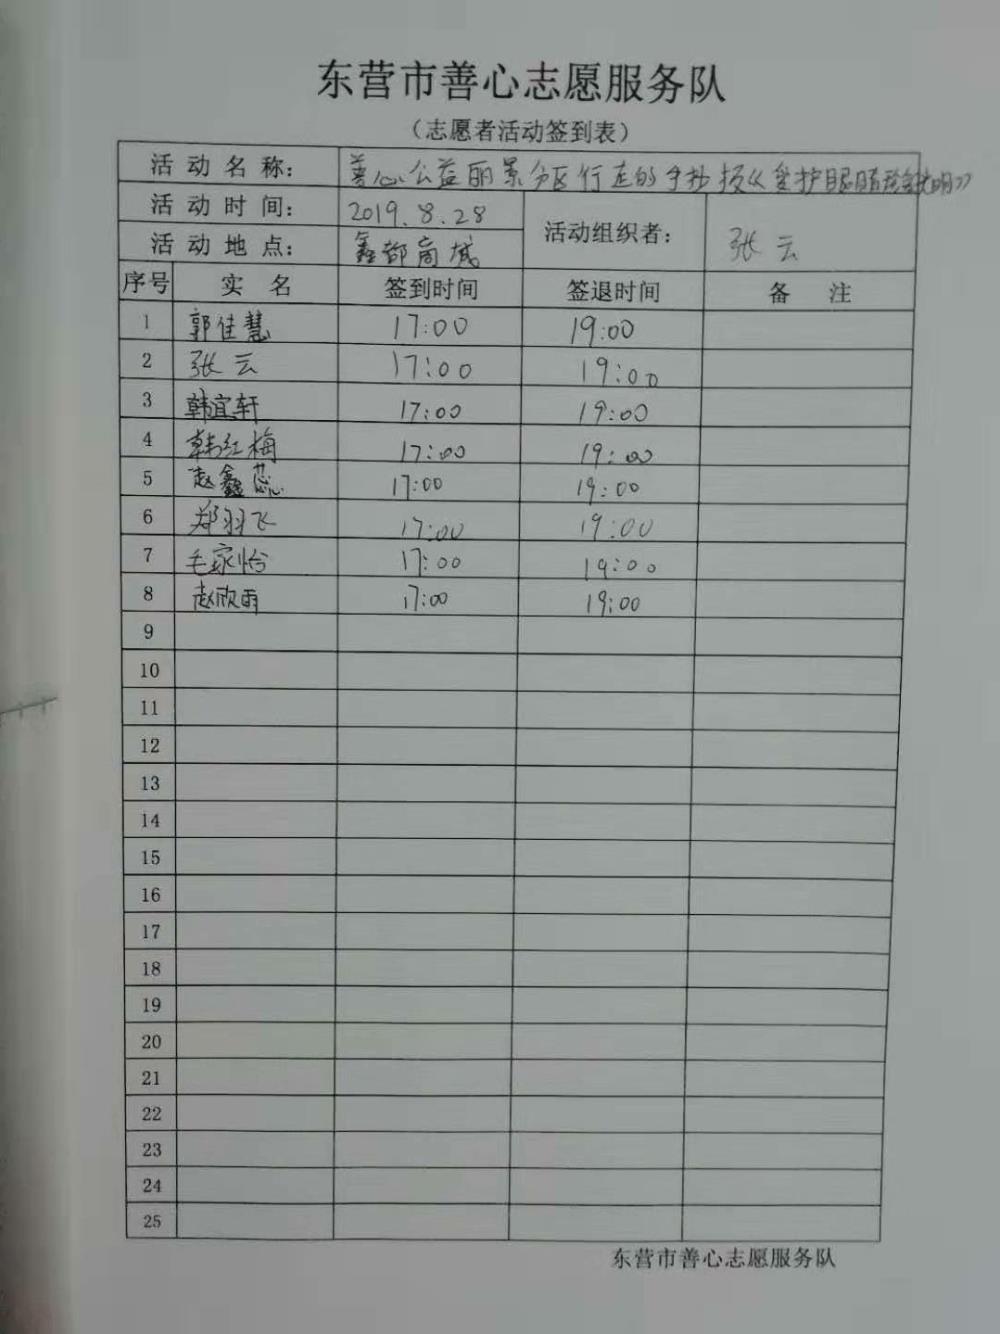 东营市善心志愿服务队
（志愿者活动签到表）
活动名称： 善心公益丽景分区行走的手抄报《爱护眼睛
活动时间： 2019.8.28
活动组织者： 张云
活动地点： 鑫都商城
序号 实名 签到时间 签退时间 备注
1 郭佳慧 17:00 19:00
2 张云 17:00 19:00
3 韩宜轩 17:00 19:00
4 韩红梅 17:00 19:00
5 赵鑫蕊 17:00 19:00
6 郑羽飞 17:00 19:00
7 毛家怡 17:00 19:00
8 赵欣雨 17:00 19:00
9
10
11
12
13
14
15
16
17
18
19
20
21
22
23
24
25
东营市善心志愿服务队